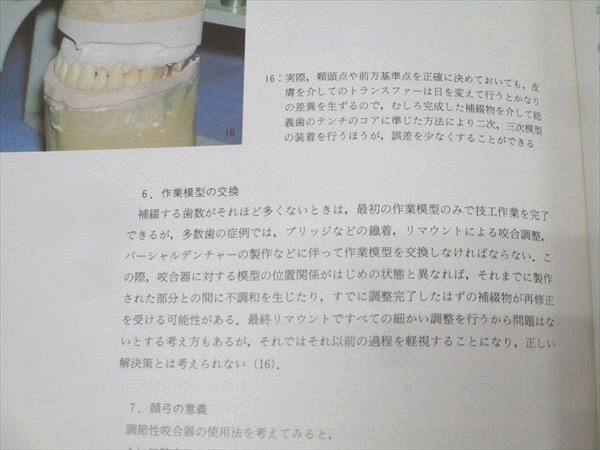 16
16：実際，顆頭点や前方基準点を正確に決めておいても，皮
膚を介してのトランスファーは日を変えて行うとかなり
の差異を生ずるので，むしろ完成した補綴物を介して総
義歯のテンチのコアに準じた方法により二次，三次模型
の装着を行うほうが，誤差を少なくすることができる
6．作業模型の交換
補綴する歯数がそれほど多くないときは，最初の作業模型のみで技工作業を完了
できるが，多数歯の症例では，ブリッジなどの鑞着，リマウントによる咬合調整，
パーシャルデンチャーの製作などに伴って作業模型を交換しなければならない．こ
の際，咬合器に対する模型の位置関係がはじめの状態と異なれば，それまでに製作
された部分との間に不調和を生じたり，すでに調整完了したはずの補綴物が再修正
を受ける可能性がある．最終リマウントですべての細かい調整を行うから問題はな
いとする考え方もあるが，それではそれ以前の過程を軽視することになり，正しい
解決策とは考えられない（16）．
7．顔弓の意義
調節性咬合器の使用法を考えてみると，